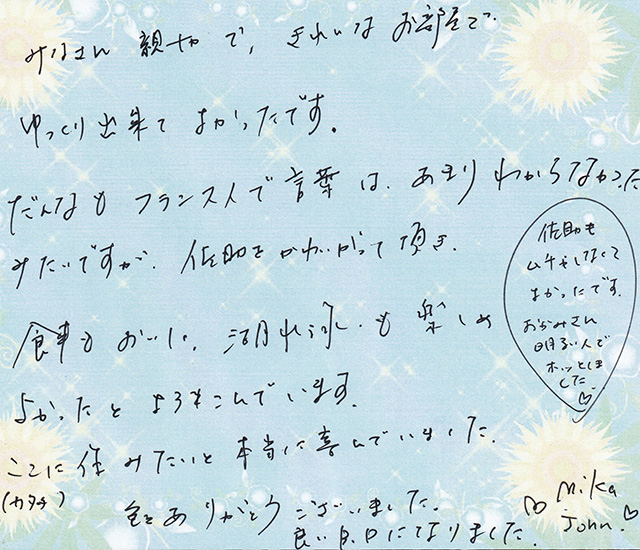 みなさん 親切で、きれいなお部屋で
ゆっくり出来てよかったです。
だんなもフランス人で言葉は、あまりわからなかった
みたいですが、佐助をかわいがって頂き、
食事もおいしい、も楽しめ
よかったとよろこんでいます。
ここに住みたいと本当に喜んでいました。
(カタチ)
ありがとうございました。
良い日になりました。
佐助も
ムチャしなくて
よかったです。
おかみさん
明るい人で
ホッとしま
した。♡
Mika
John ♡